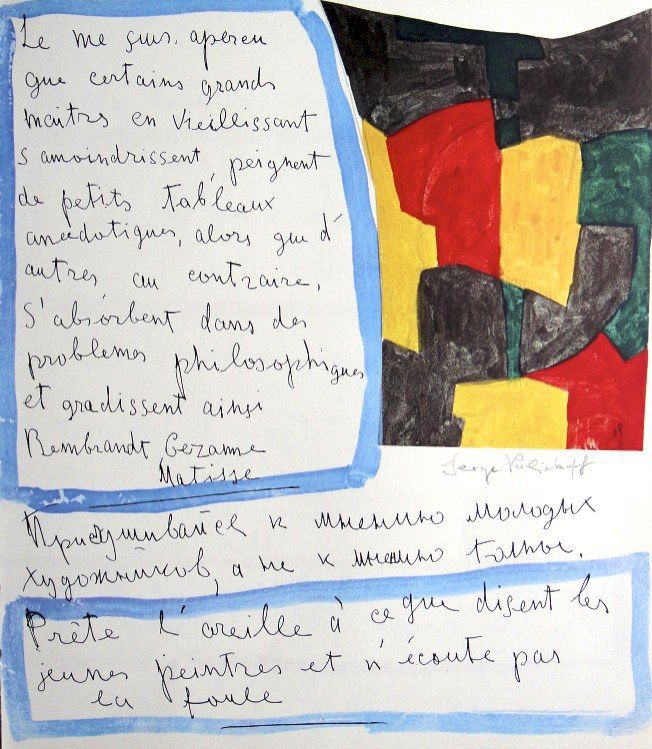 Le me suis aperçu
que certains grands
maitrs en vieillissant
s amoindrissent, peignent
de petits tableaux
anecdotiques, alors que d'
autres au contraire,
s'absorbent dans des
problemes philosophiques
et gradissent ainsi
Rembrandt Cezanne
Matisse
Serge Poliakoff
Прислушивайся к мнению молодых
художников, а не к мнению толпы.
Prête l'oreille à ce que disent les
jeunes peintres et n'écoute pas
la foule